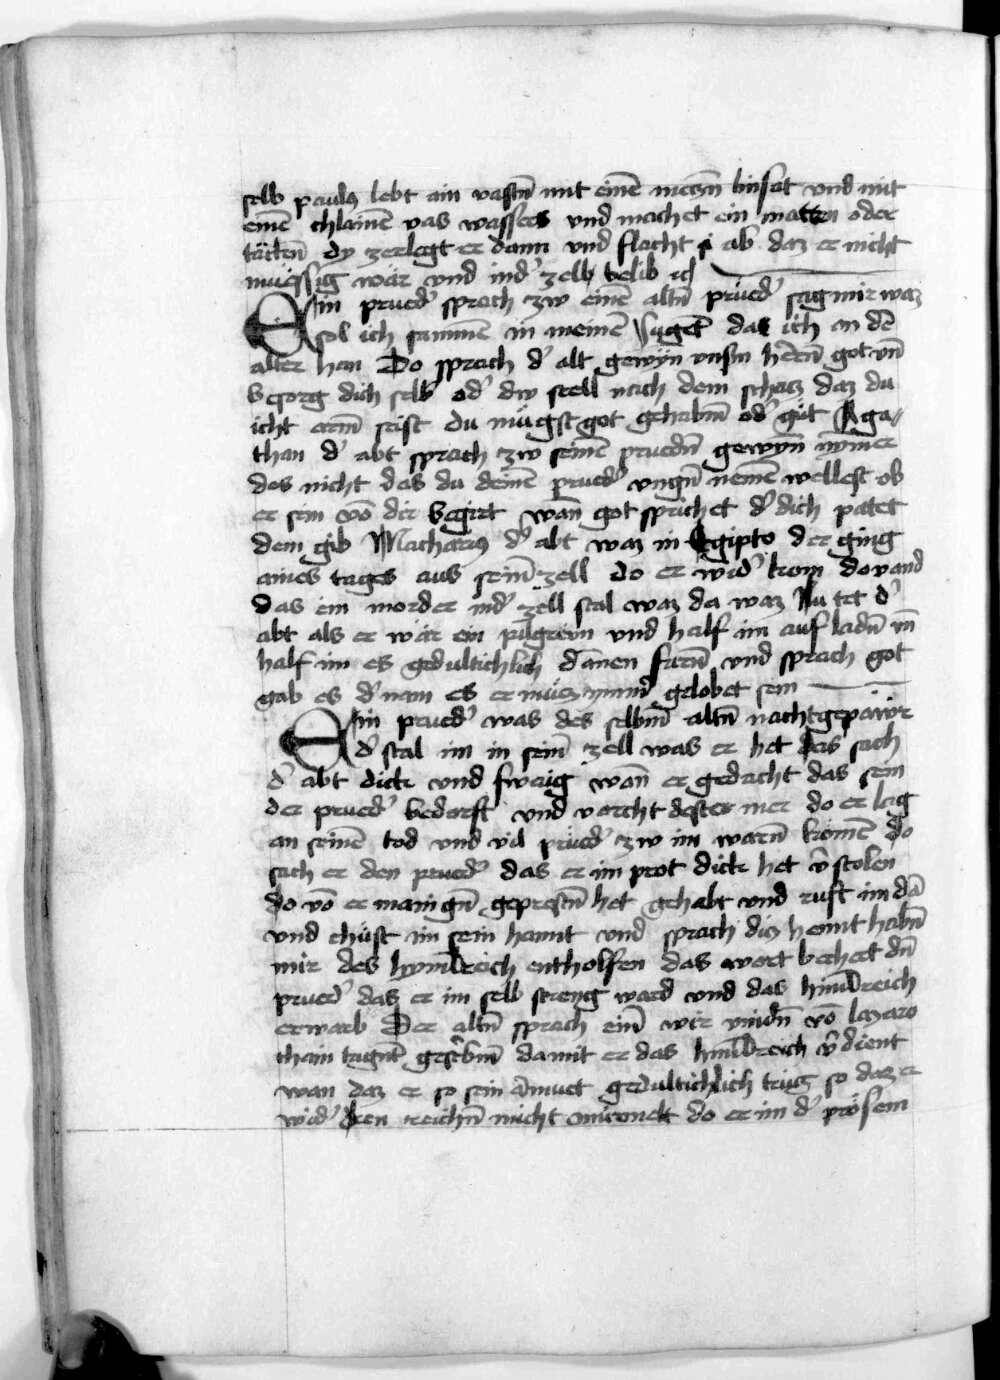 selb paulus lebt ain vastn̄ mit einē metzn̄ linsat vnd mit
einē chlainē vas wassers vnd machet ein matten oder
tätten̄ dy zerlegt er dann vnd flacht ab daz er nicht
müessig wär vnd ind' zelb belib
Ein prued' sprach zw einē altn̄ prüed' sag mir waz
sol ich sammē in meinē Jugēt das ich an dē
alter han Do sprach d' alt gewyn vnsm̄ herrn̄ got vn̄
besorg dich selb od' dw stell nach dem schatz daz du
icht arm̄ seist du mügst got gehabm̄ od' güt Aga⸗
than d' abt sprach zw seinē pruedn̄ gewyn̄ nymer
des nicht das du deinē prued' vngn̄ nemē wellest ob
er sein vō dir begirt wan̄ got sprichet d' dich patet
dem gib Macharius d' abt waz in Egipto der ging
aines tages aus sein̄ zell do er wid' kom do vand
das ein morder ind' zell stal waz da waz Nu tet d'
abt als er wär ein pilgreim vnd half im auf ladn̄ vn̄
half im es gedultichlich dānen fürn̄ vnd sprach got
gab es d' nam es er müez ymm' gelobet sein
Ein prued' was des selbm̄ altn̄ nachtgepawr
d' stal im in sein̄ zell was er het das sach
d' abt dick vnd swaig wan̄ er gedacht das sein
der prued' bedorft vnd vorcht dester mer do er lag
an seinē tod vnd vil prüed' zw im warn̄ komē do
sach er den prued' das er im prot dick het v̄stolen
do vō er manign̄ geprestn̄ het gehabt vnd ruft im dā
vnd chüst im sein hannt vnd sprach diz hennt habn̄
mir des hymelreich entholfen das wort bechert dn̄
prued' das er im selb streng ward vnd das himelreich
erwarb Der altn̄ sprach ein̄ wir vindn̄ vō lazaro
chain tugēt geschribm̄ damit er das himelreich v̄dient
wan daz er so sein armuet gedultichlich trug so daz er
wid' den reichn̄ nicht murmelt do er im d' prösem